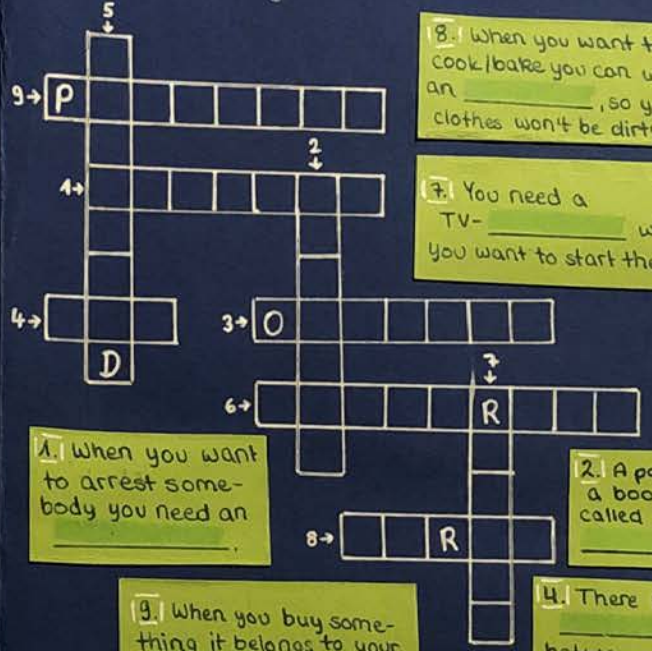 5
9→ P
2
1→
4→
3→ O
7
6→ R
D
8→ R
8. When you want
cook/bake you can
an ______, so
clothes won't be
7. You need a
TV- ______
you want to start
1. When you want
to arrest some-
body you need an
______.
2. A
a
called
______
9. When you buy some-
thing it belongs to your
4. There
______